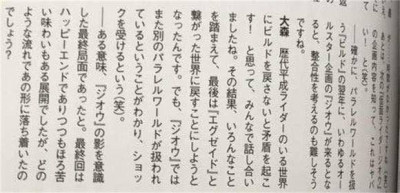 の企画内容を知って「これはヤバ
い」と(笑)。
── 確かに、パラレルワールドを扱
う『ビルド』の翌年に、いわゆるオー
ルスター企画の『ジオウ』が来るとな
ると、整合性を考えるのも難しそう
ですね。
大森 歴代平成ライダーのいる世界
にビルドを戻さないと矛盾を起こ
す! と思って、みんなで話し合い
ましたね。その結果、いろんなこと
を踏まえて、最後は『エグゼイド』と
繋がった世界に戻すことにしようと
なったんです。でも、『ジオウ』では
また別のパラレルワールドが扱われ
ているということがわかり、ショッ
クを受けるという(笑)。
── ある意味、『ジオウ』の影を意識
した最終局面であったと。最終回は
ハッピーエンドでありつつもほろ苦
い味わいもある展開でしたが、どの
ような流れであの形に落ち着いたの
でしょう?